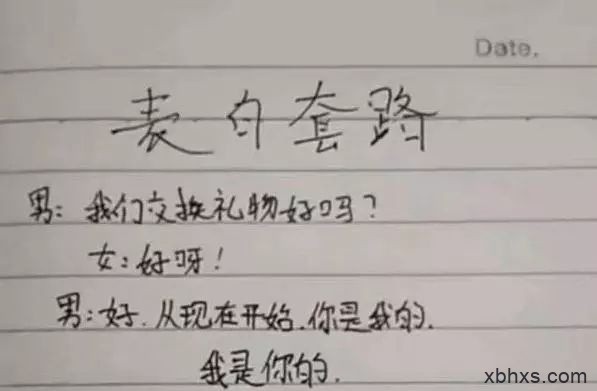 Date.
表白套路
男：我们交换礼物好吗？
女：好呀！
男：好．从现在开始．你是我的．
我是你的．
xbhxs.com